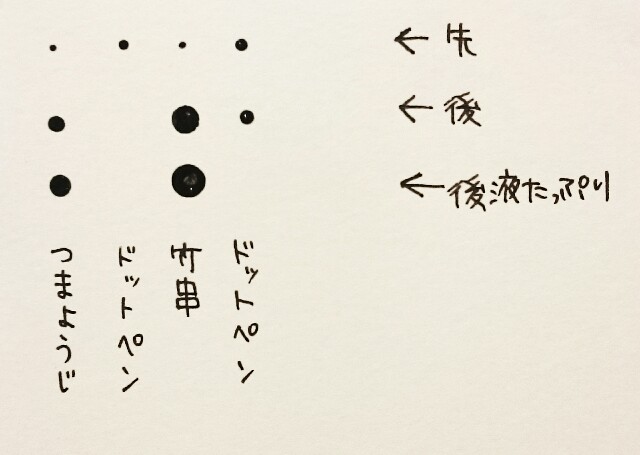 ←先
←後
←後液たっぷり
つまようじ
ドットペン
竹串
ドットペン